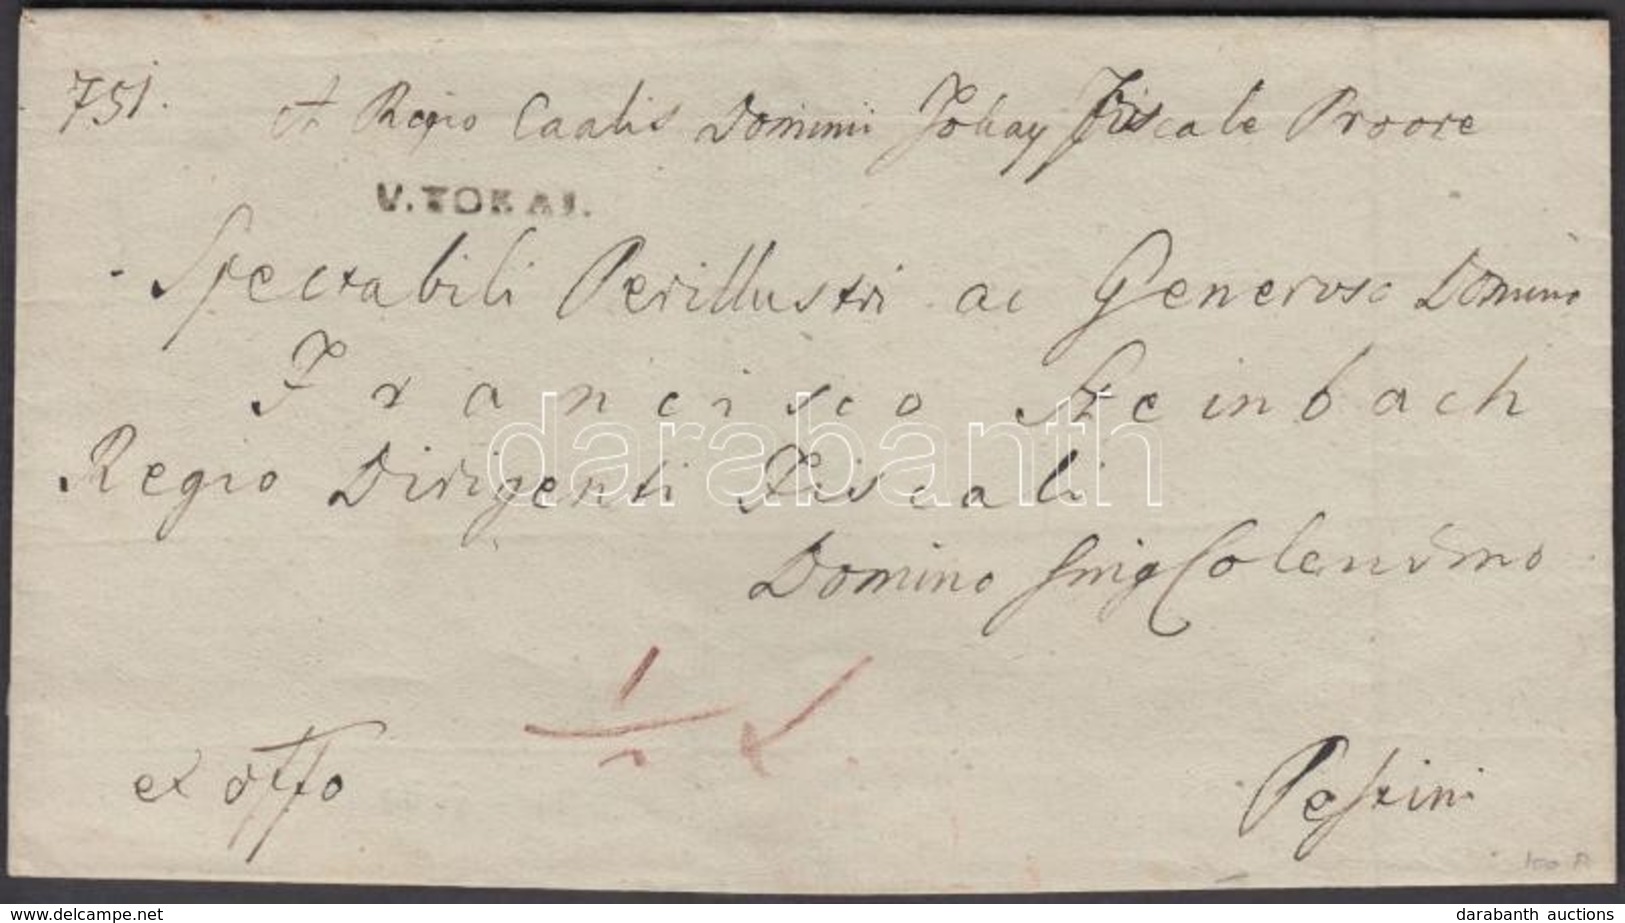 751. A Regio Caalis Dominii Tokay Fiscale Proore
V.TOKAI.
Spectabili Perillustri ac Generoso Domino
Francisco Steinbach
darabanth
Regio Dirigenti Fiscali
Domino Colendmo
1/2 L.
ex offo
Pestini
100 R
darabanth auctions
www.delcampe.net